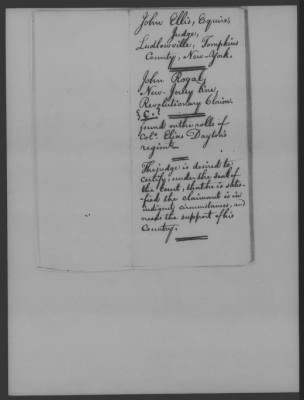 John Ellis, Esquire,
Judge,
Ludlowville, Tompkins
County, New-York.
John Rogat,
New-Jersey line,
Revolutionary Claim.
found on the rolls of
Colo. Elias Dayton's
regiment
The judge is desired to
certify, under the seal of
the Court, that he is satis-
fied the claimant is in
indigent circumstances, and
needs the support of his
Country.